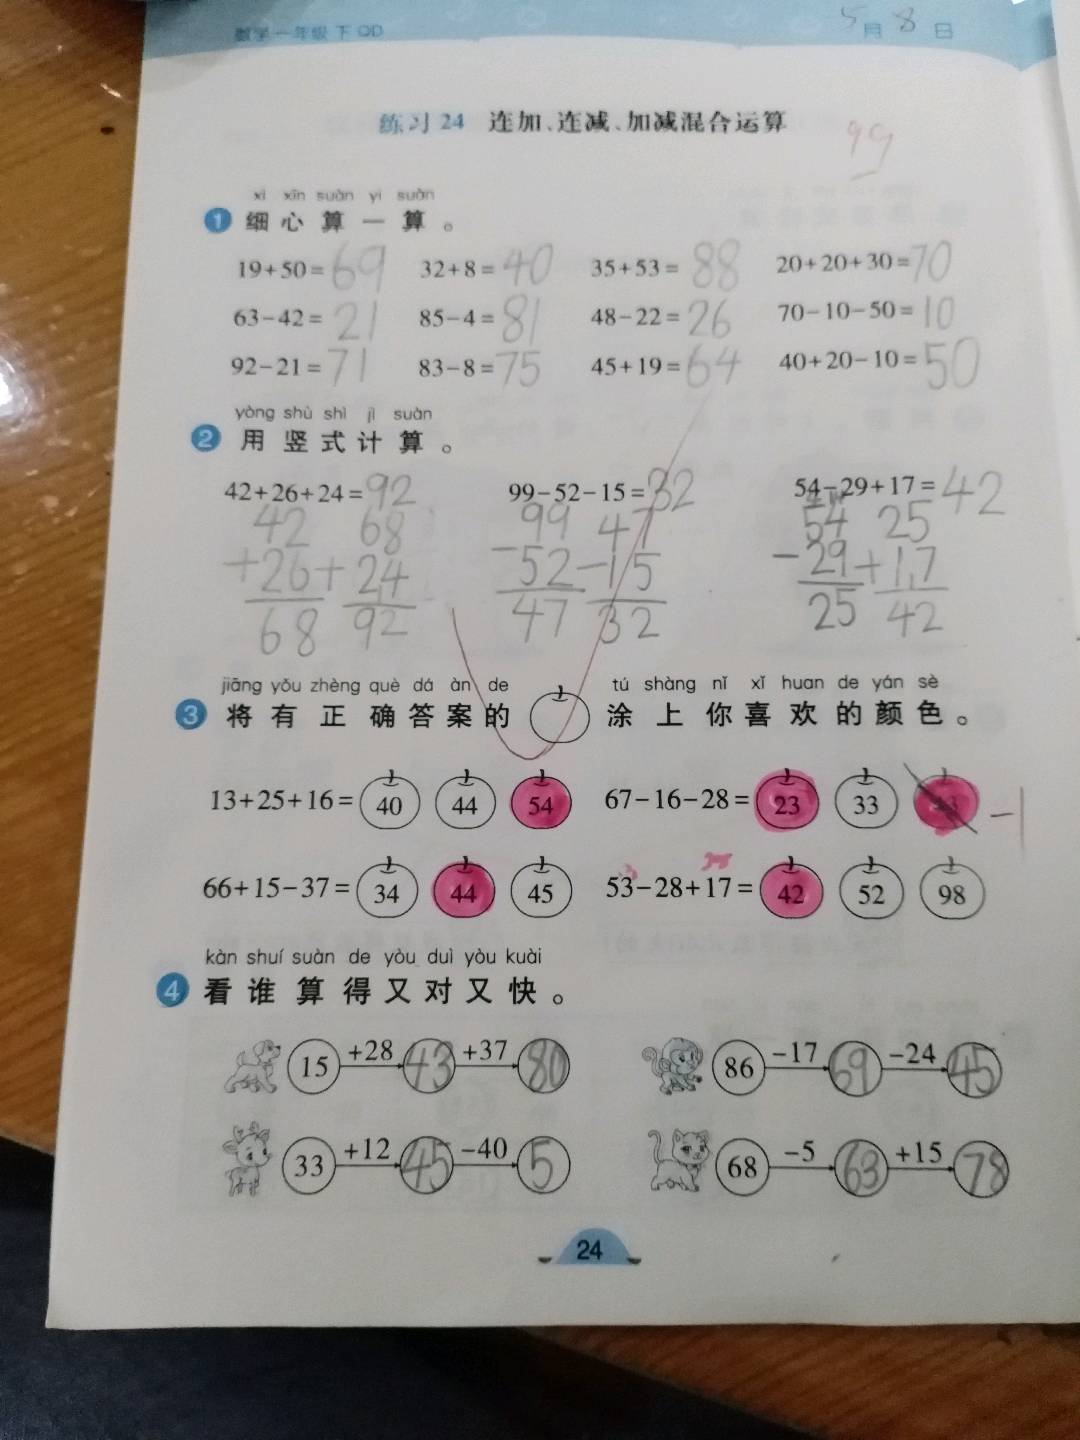 数学一年级 下 QD 5月8日
练习 24 连加、连减、加减混合运算
99
xì xīn suàn yi suàn
1 细心算一算。
19+50=69 32+8=40 35+53=88 20+20+30=70
63-42=21 85-4=81 48-22=26 70-10-50=10
92-21=71 83-8=75 45+19=64 40+20-10=50
yòng shù shì jì suàn
2 用竖式计算。
42+26+24=92 99-52-15=32 54-29+17=42
42 68 99 47 54 25
+26 +24 -52 -15 -29 +17
68 92 47 32 25 42
jiāng yǒu zhèng què dá àn de tú shàng nǐ xǐ huan de yán sè
3 将有正确答案的 涂上你喜欢的颜色。
13+25+16= 40 44 54 67-16-28= 23 33 -1
66+15-37= 34 44 45 53-28+17= 42 52 98
kàn shuí suàn de yòu duì yòu kuài
4 看谁算得又对又快。
15 +28 43 +37 80 86 -17 69 -24 45
33 +12 45 -40 5 68 -5 63 +15 78
24